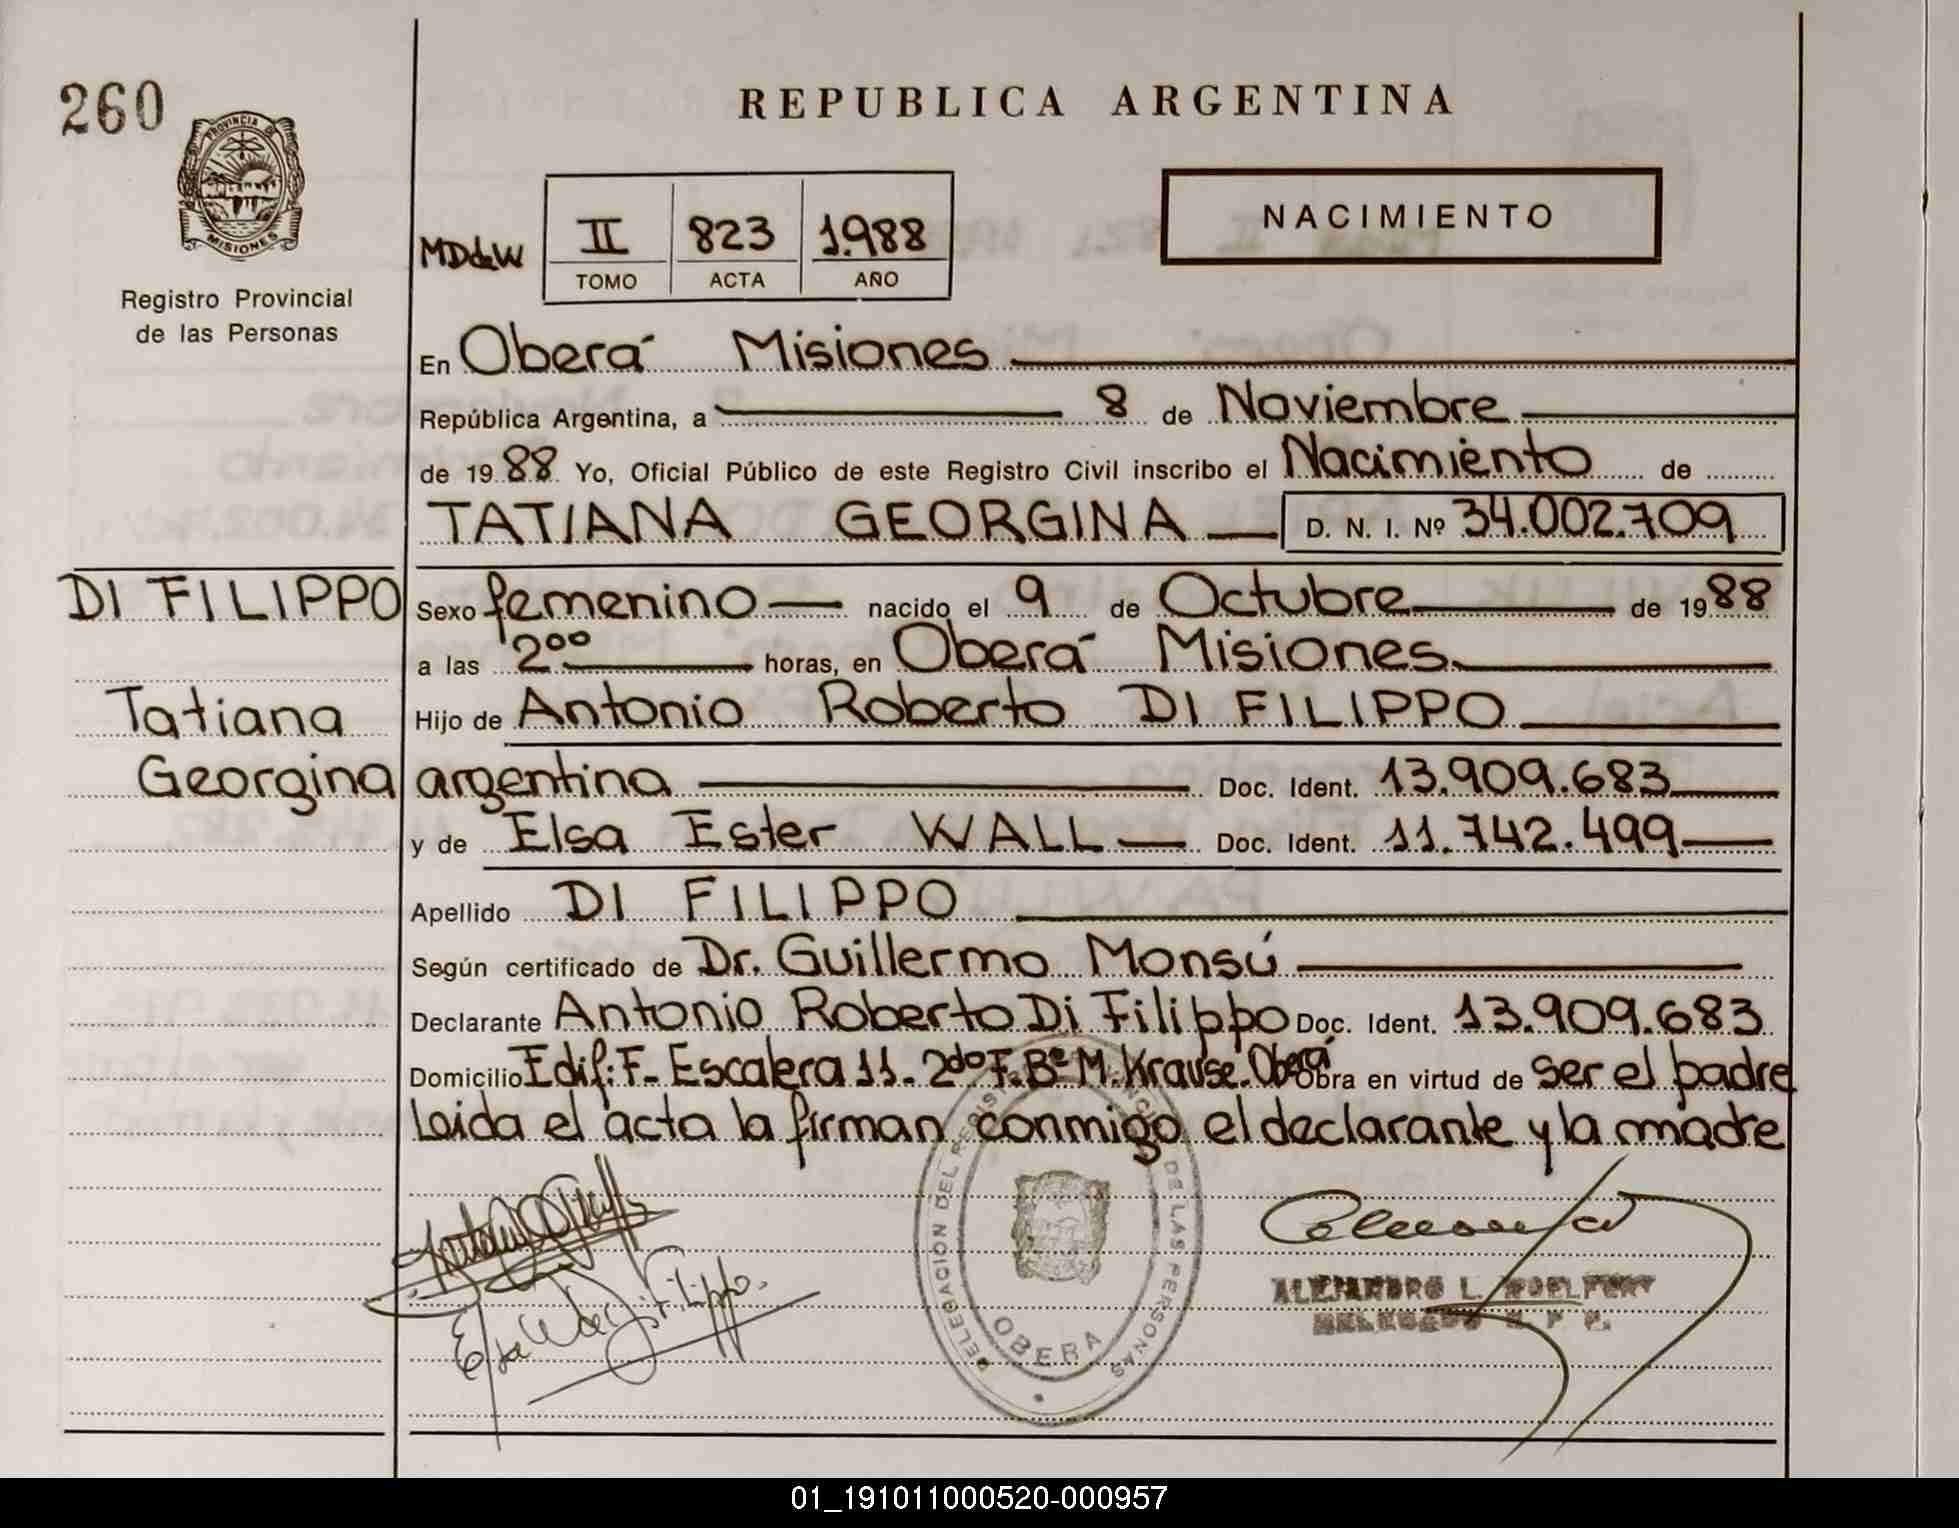 260
PROVINCIA DE
MISIONES
Registro Provincial
de las Personas
REPUBLICA ARGENTINA
MDdeW
II 823 1.988
TOMO ACTA AÑO
NACIMIENTO
En Oberá Misiones
República Argentina, a 8 de Noviembre
de 1988 Yo, Oficial Público de este Registro Civil inscribo el Nacimiento de
TATIANA GEORGINA D. N. I. Nº 34.002.709
DI FILIPPO
Tatiana
Georgina
Sexo femenino nacido el 9 de Octubre de 1988
a las 2⁰⁰ horas, en Oberá Misiones
Hijo de Antonio Roberto DI FILIPPO
argentina Doc. Ident. 13.909.683
y de Elsa Ester WALL Doc. Ident. 11.742.499
Apellido DI FILIPPO
Según certificado de Dr. Guillermo Monsú
Declarante Antonio Roberto Di Filippo Doc. Ident. 13.909.683
Domicilio Edif: F- Escalera 11. 2do F. Bº M. Krause. Oberá Obra en virtud de ser el padre
Leida el acta la firman conmigo el declarante y la madre
DELEGACION DEL REGISTRO PROVINCIAL DE LAS PERSONAS
OBERA
ALEJANDRO L.
DELEGADO R. P. P.
01_191011000520-000957